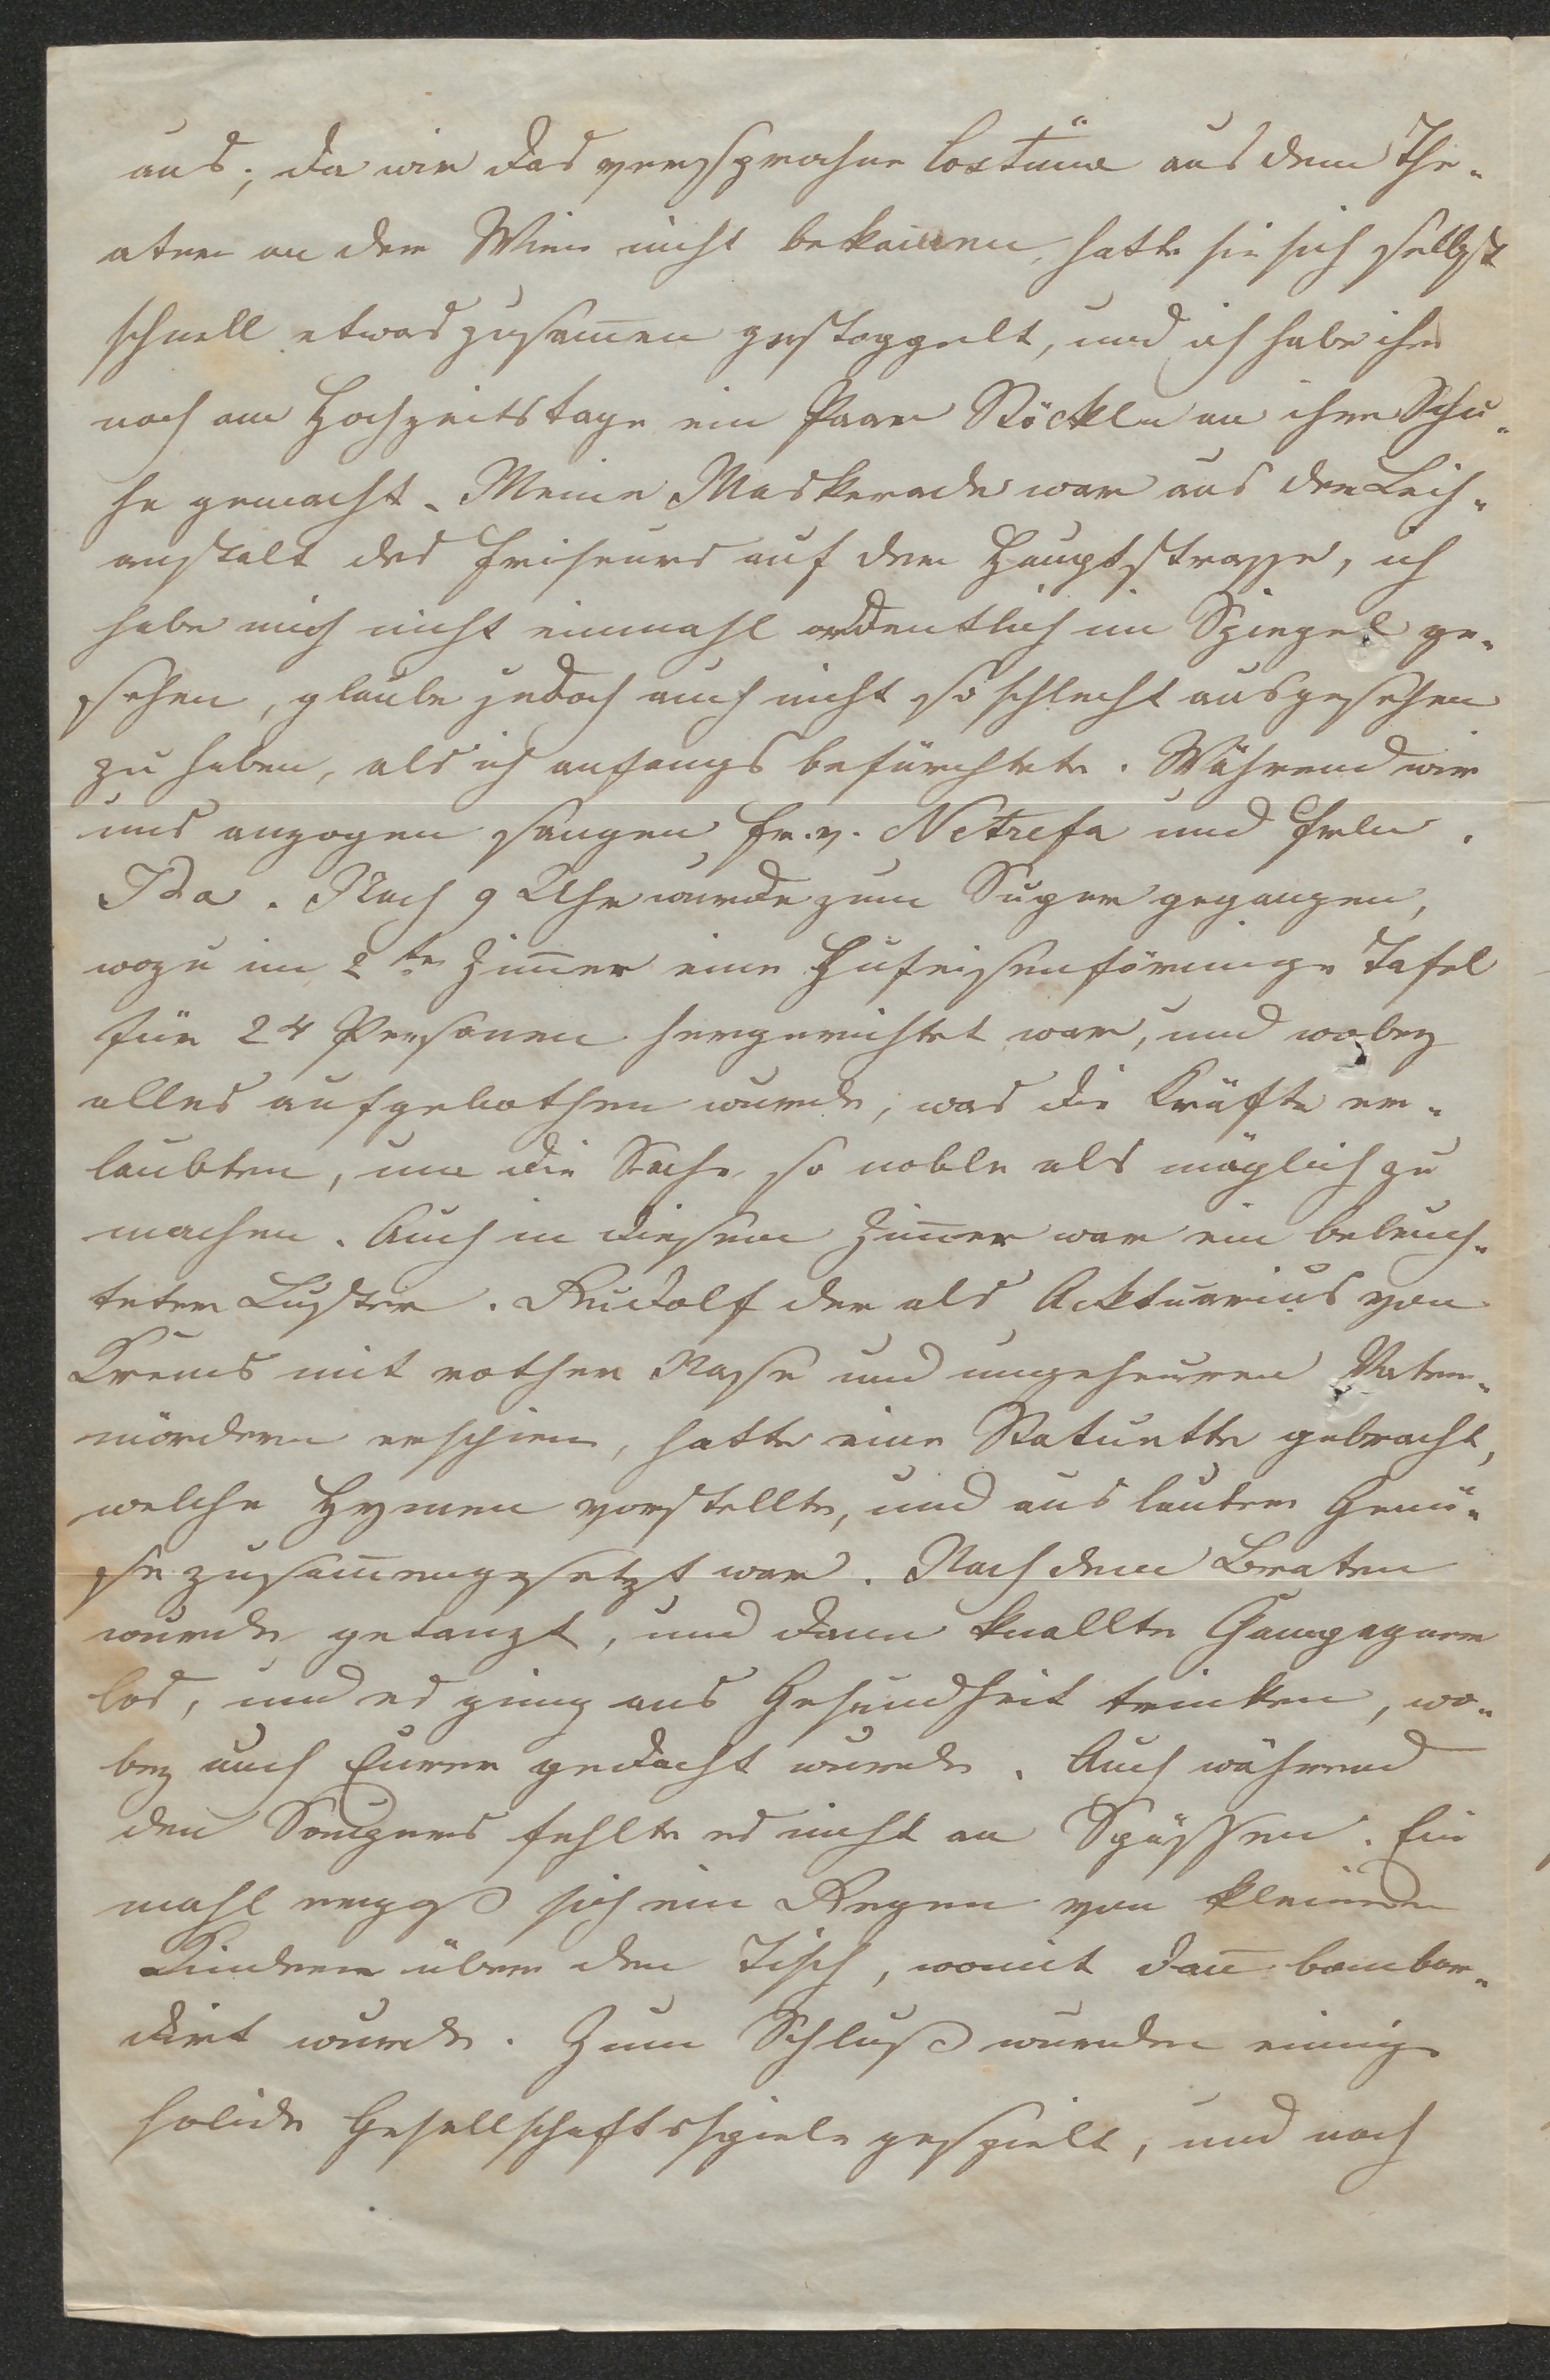 aus; da wir das versprochne Costüme aus dem The-
ater an der Wien nicht bekamen, hatte sie sich selbst
schnell etwas zusam̅en gestoppelt, und ich habe ihr
noch am Hochzeitstage ein Paar Stöckln an ihre Schu-
he gemacht. Meine Maskerade war aus der Leih-
anstalt des Friseurs auf der Hauptstrasse, ich
habe mich nicht einmahl ordentlich im Spiegel ge-
sehen, glaube jedoch auch nicht so schlecht ausgesehen
zu haben, als ich anfangs befürchtete. Während wir
uns anzogen sangen Fr. v. Netrefa und Frln.
Ida. Nach 9 Uhr wurde zum Super gegangen,
wozu im 2ten Zim̅er eine Hufeisenförmige Tafel
für 24 Personen hergerichtet war, und wobey
alles aufgebothen wurde, was die Kräfte er-
laubten, um die Sache so noble als möglich zu
machen. Auch in diesem Zim̅er war ein beleuch-
teter Luster. Rudolf der als Acktuarius von
Krems mit rother Nase und ungeheuren Vater-
mördern erschien, hatte eine Statuette gebracht,
welche Hymen vorstellte, und aus lauter Gemü-
se zusam̅engesetzt war. Nach dem Braten
wurde getanzt, und dann knallte Champagner
los, und es ging ans Gesundheit trinken, wo-
bey auch Eurer gedacht wurde. Auch während
den Soupers fehlte es nicht an Spässen. Ein
mahl ergoß sich ein Regen von kleinen
Kindern über den Tisch, womit dan̅ bombar-
dirt wurde. Zum Schluß wurden einige
solide Gesellschaftsspiele gespielt, und nach